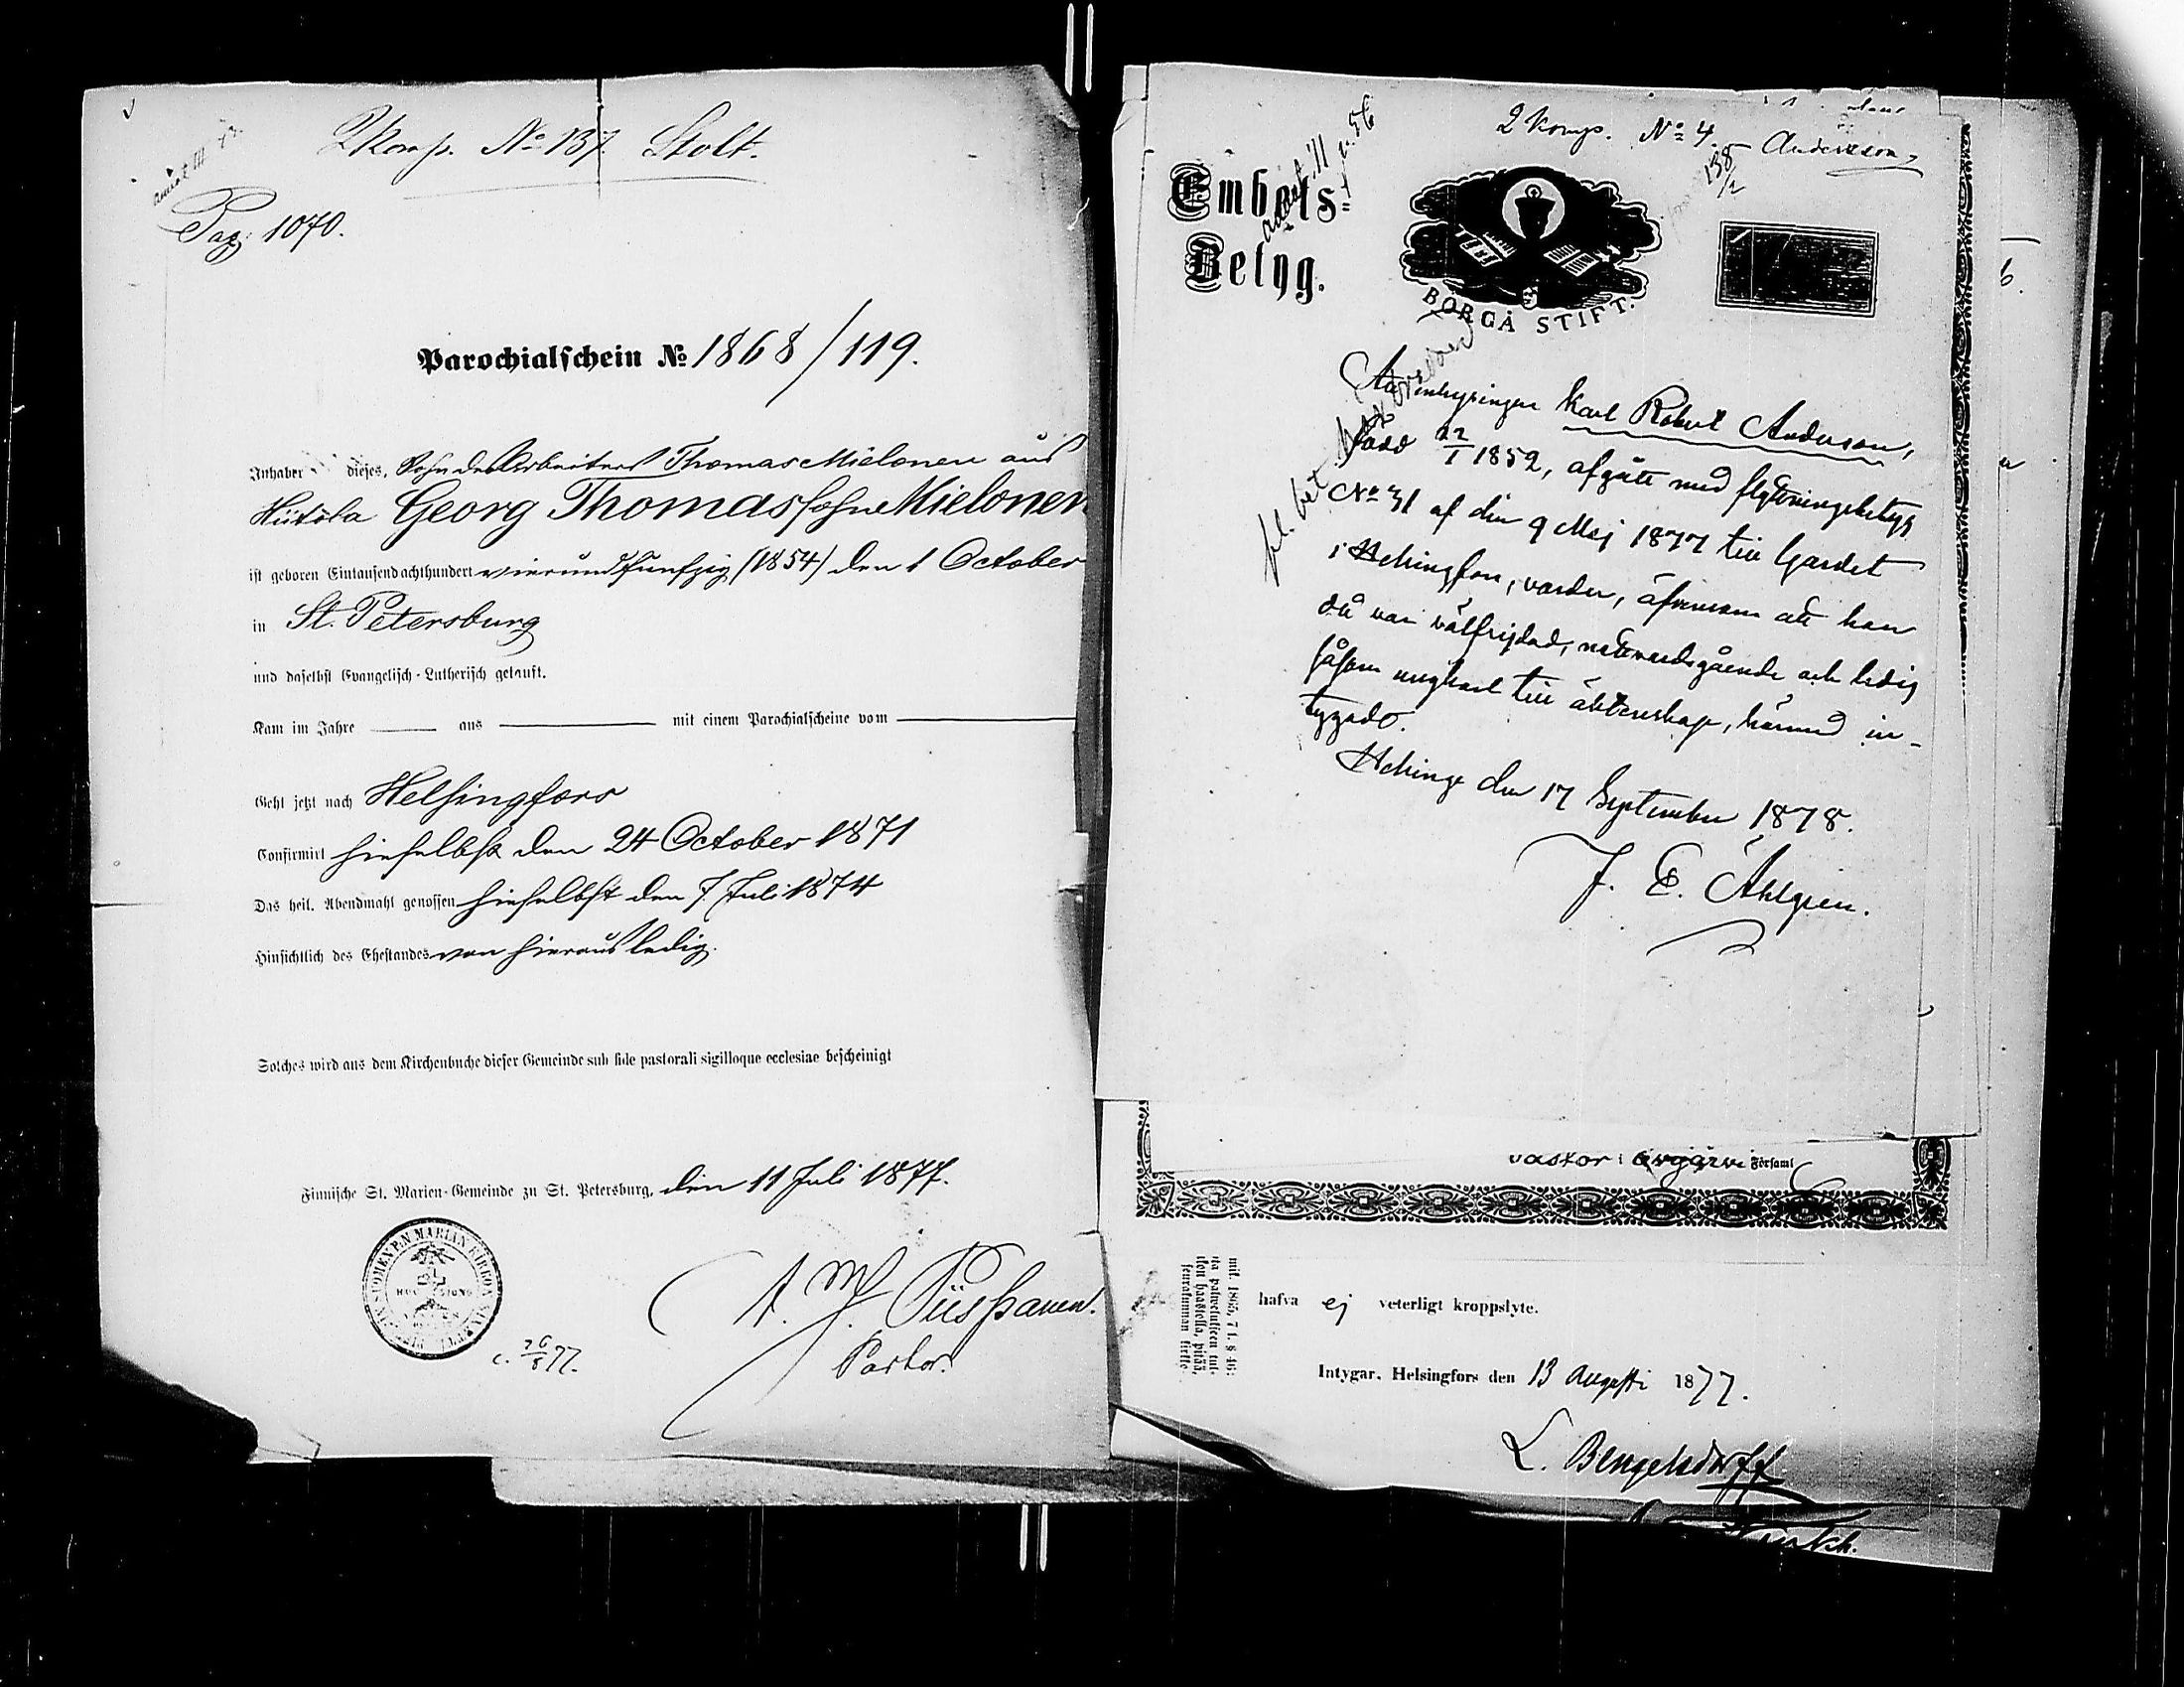 2 Komp. No 137. Stolt.
Pag: 1070.
Parochialschein No 1868/119.
Inhaber dieses, Sohn des Arbeiters Thomas Mielonen aus
Hiitola Georg Thomassohn Mielonen
ist geboren Eintausendachthundert vierundfünfzig (1854) den 1 October
in St. Petersburg
und daselbst Evangelisch-Lutherisch getauft.
Kam im Jahre aus mit einem Parochialscheine vom
Geht jetzt nach Helsingfors
Confirmirt hieselbst den 24 October 1871
Das heil. Abendmahl genossen hieselbst den 7 Juli 1874
Hinsichtlich des Ehestandes von hieraus ledig.
Solches wird aus dem Kirchenbuche dieser Gemeinde sub fide pastorali sigilloque ecclesiae bescheinigt
Finnische St. Marien-Gemeinde zu St. Petersburg, den 11 Juli 1877.
Pastor.
2 Komp. No 4. Andersson,
138/2
Embets-
Betyg.
BORGÅ STIFT.
Karl Robert Anderson,
född 22/1 1852, afgått med flyttningsbetyg
No 31 af den 9 Maj 1877 till Gardet
i Helsingfors, varder, äfvensom att han
då var välfrejdad, nattvardsgående och ledig
såsom ungkarl till äktenskap, härmed in-
tygadt.
Helsinge den 17 September 1878.
J. E. Åhlgren.
Pastor i Församl
hafva ej veterligt kroppslyte.
Intygar. Helsingfors den 13 Augusti 1877.
L. Bengelsdorff